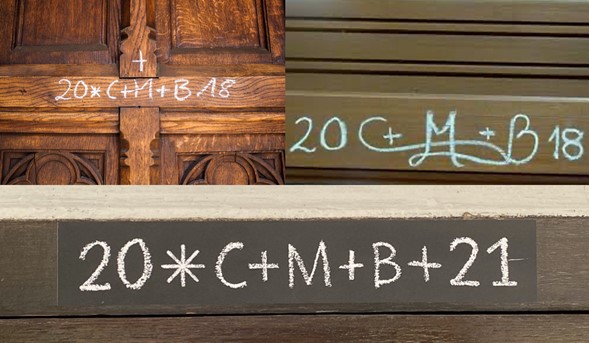 +
20*C+M+B.18
20 C+ M +B 18
20*C+M+B+21